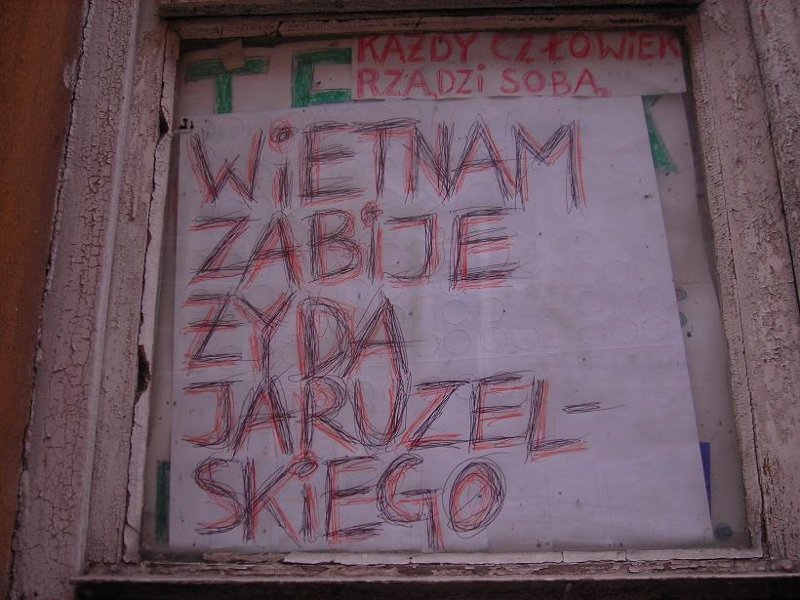 KAŻDY CZŁOWIEK
RZĄDZI SOBĄ.
WIETNAM
ZABIJE
ŻYDA
JARUZEL-
SKIEGO